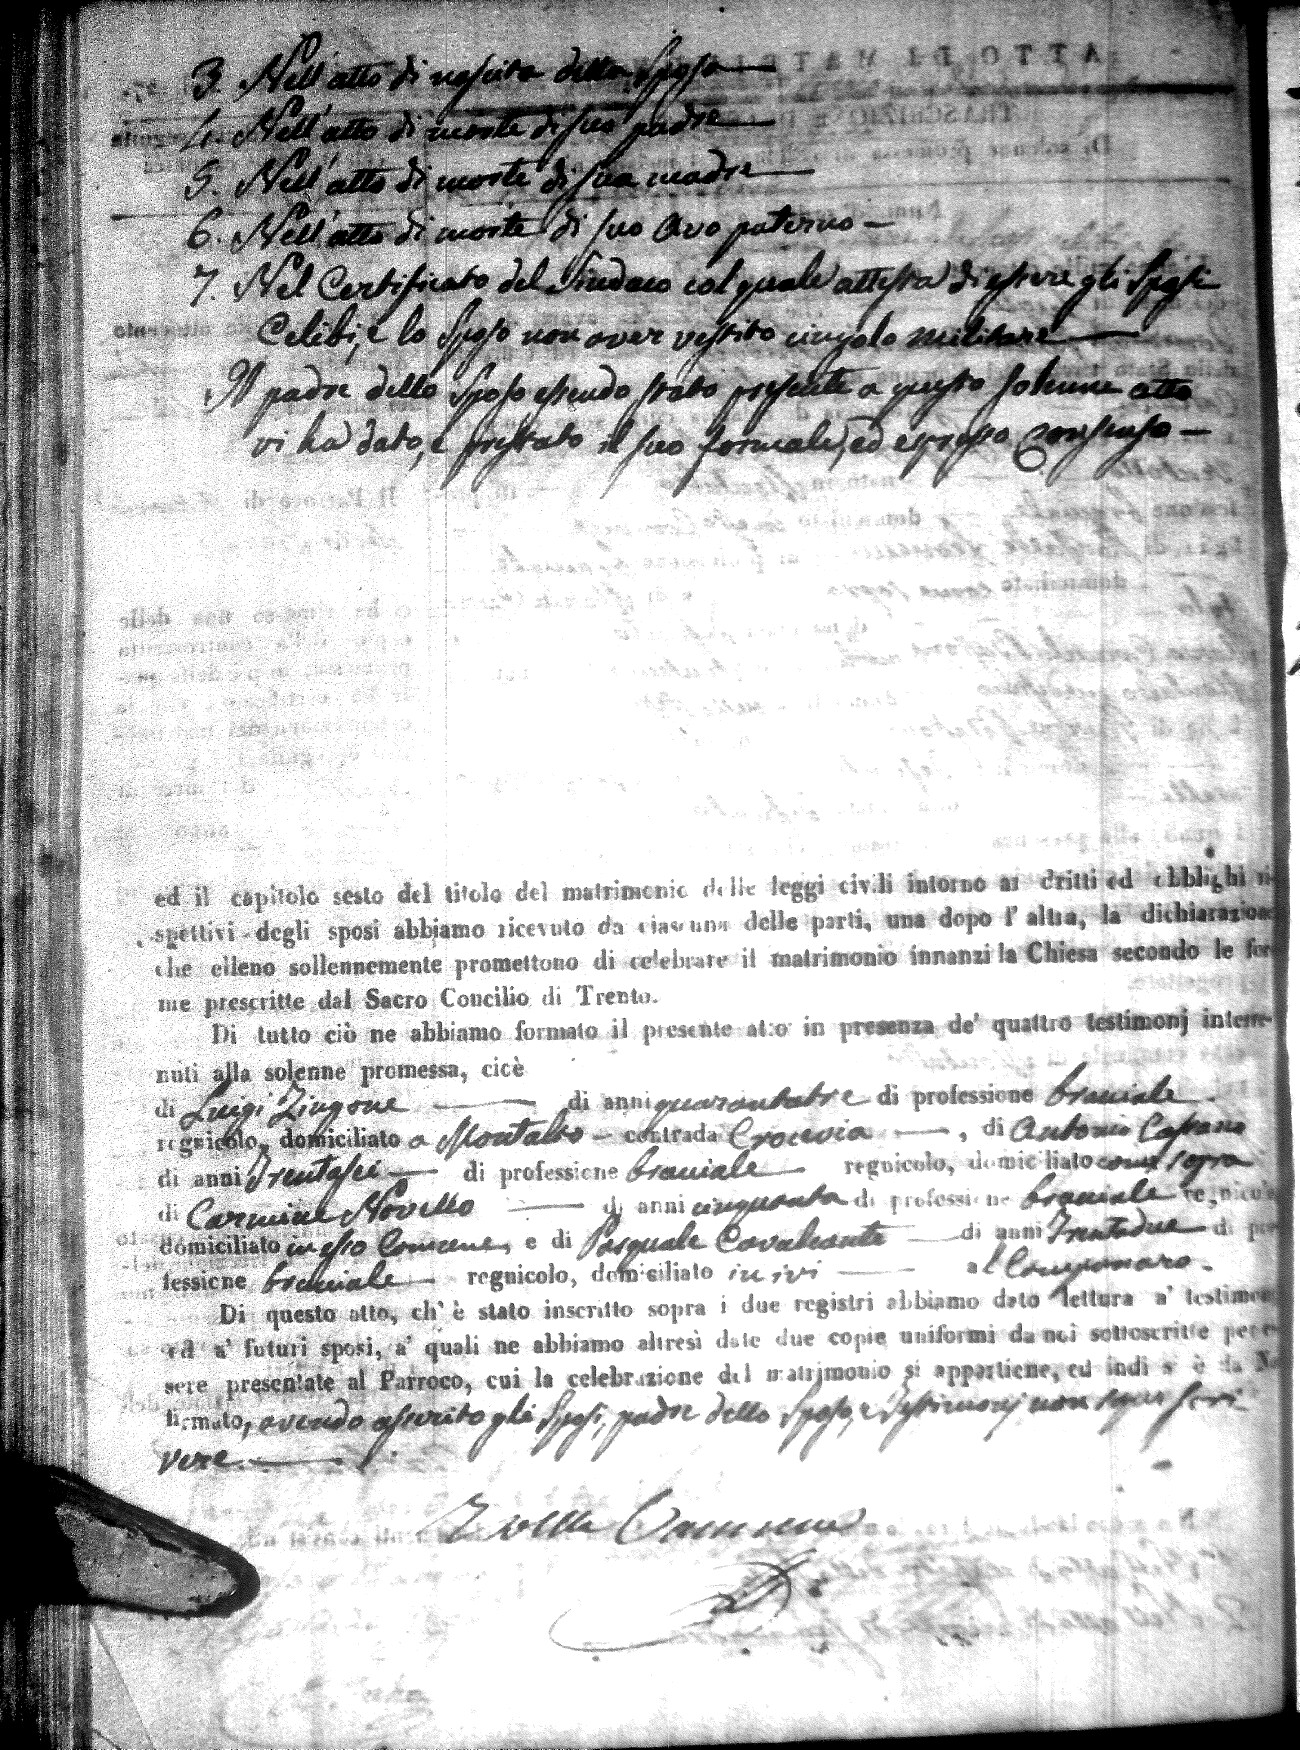 3. Nell'atto di nascita dello Sposo
4. Nell'atto di morte di suo padre
5. Nell'atto di morte di sua madre
6. Nell'atto di morte di suo avo paterno
7. Nel Certificato del Sindaco col quale attesta di essere gli Sposi
Celibi, e lo Sposo non aver vestito cingolo militare
Il padre dello Sposo essendo stato presente a questo solenne atto
vi ha dato, e prestato il suo formale, ed espresso consenso
ed il capitolo sesto del titolo del matrimonio delle leggi civili intorno ai dritti ed obblighi ri-
spettivi degli sposi abbiamo ricevuto da ciascuna delle parti, una dopo l'altra, la dichiarazione
che elleno sollennemente promettono di celebrare il matrimonio innanzi la Chiesa secondo le for-
me prescritte dal Sacro Concilio di Trento.
Di tutto ciò ne abbiamo formato il presente atto in presenza de' quattro testimonj interve-
nuti alla solenne promessa, cioè
di Luigi Zingone di anni quarantatre di professione braciale
regnicolo, domiciliato a Montalto contrada Crocevia, di Antonio
di anni Trentasei di professione braciale regnicolo, domiciliato come sopra
di Carmine Novello di anni cinquanta di professione braciale regnicolo
domiciliato in esso Comune, e di Pasquale Cavalcante di anni Trentadue di pro-
fessione braciale regnicolo, domiciliato in ivi al
Di questo atto, ch' è stato inscritto sopra i due registri abbiamo dato lettura a' testimonj
ed a' futuri sposi, a' quali ne abbiamo altresì date due copie uniformi da noi sottoscritte per es-
sere presentate al Parroco, cui la celebrazione del matrimonio si appartiene, ed indi s' è da Noi
firmato, avendo asserito gli Sposi, padre dello Sposo, e Testimonj non saper scri
vere.